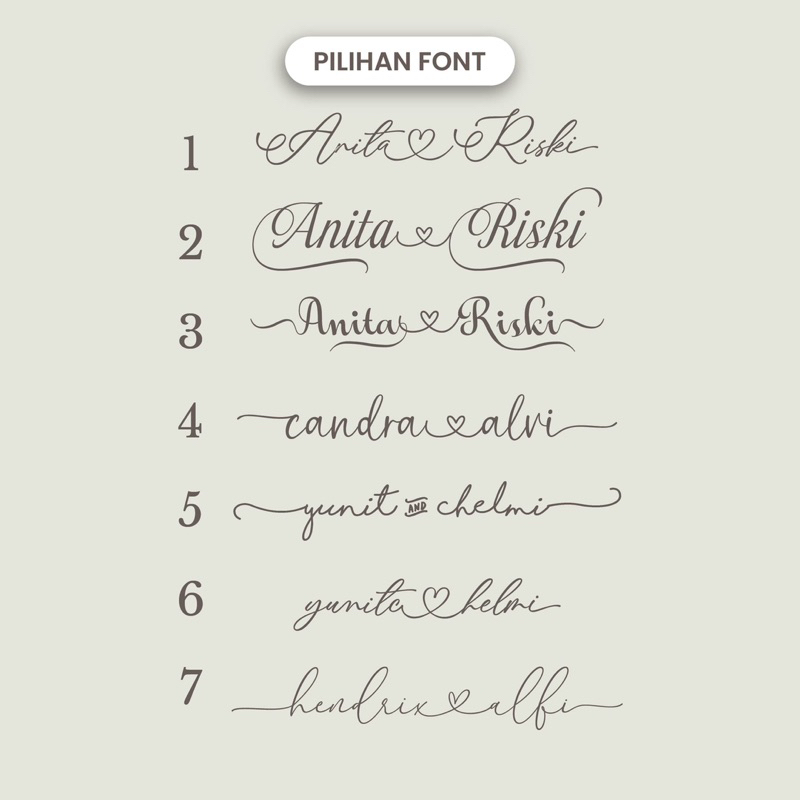 PILIHAN FONT
1 Anita ♡ Riski
2 Anita ♡ Riski
3 Anita ♡ Riski
4 candra ♡ alvi
5 yunit AND chelmi
6 yunita ♡ helmi
7 hendrix ♡ alfi